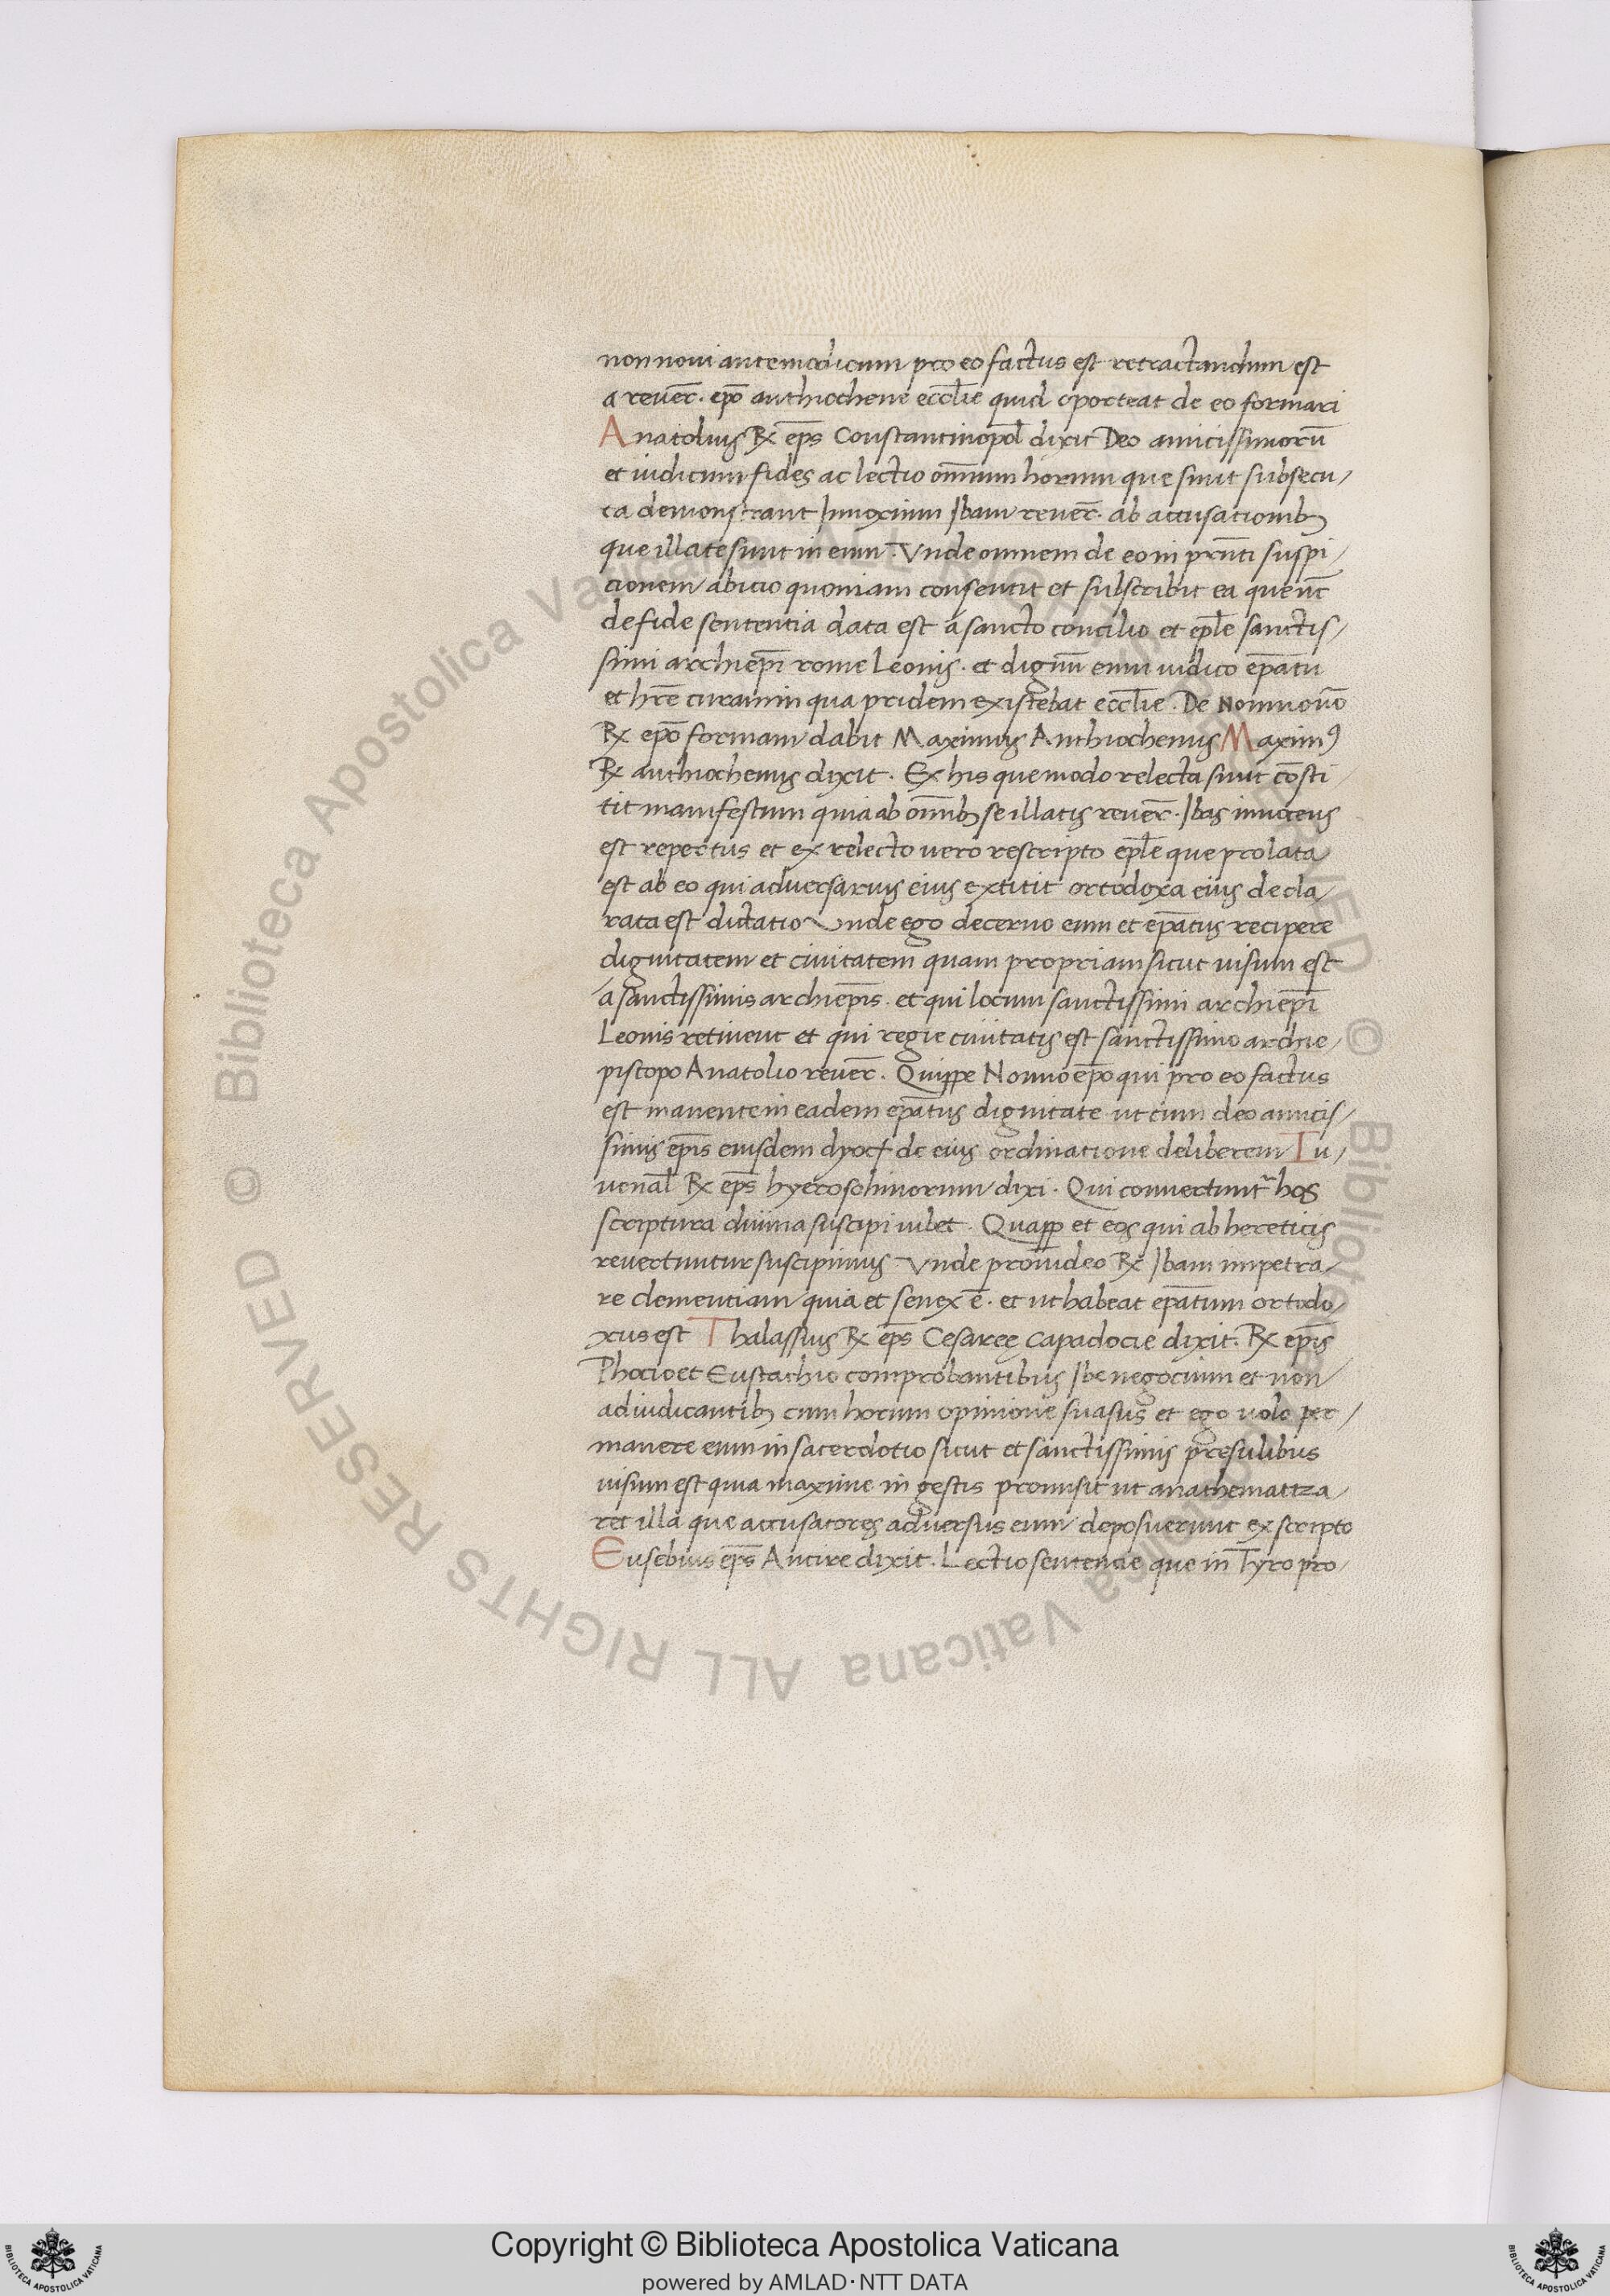 non noui autem odicum pro eo factus est retractandum est
a reuer̄. ep̄o anthiochene eccl̄ie quid oporteat de eo formari
Anatolius Rx ep̄s Constantinopol̄ dixit Deo amicissimorū
et iudicum fides ac lectio om̄ium horum que sunt subsecu/
ta demonstrant Innoxium Ibam reuer̄. ab accusationibꝫ
que illate sunt in eum. Vnde omnem de eo in pr̄nti suspi/
cionem abicio quoniam consentit et subscribit ea que nc̄
de fide sententia data est a sancto concilio et ep̄le sanctis/
simi archiep̄i rome Leonis. et dignū enim iudico ep̄atu
et hr̄e curam in qua pridem existebat eccl̄ie. De Nonno uō
Rx ep̄o formam dabit Maximus Anthiochenus Maximꝰ
Rx anthiochenus dixit. Ex his que modo relecta sunt cōsti/
tit manifestum quia ab om̄ibꝫ se illatis reuer̄. Ibas innocens
est repertus et ex relecto uero rescripto ep̄le que prolata
est ab eo qui aduersarius eius extitit ortodoxa eius decla/
rata est dictatio Vnde ego decerno eum et ep̄atus recipere
dignitatem et ciuitatem quam propriam sicut uisum est
a sanctissimis archiep̄is. et qui locum sanctissimi archiep̄i
Leonis retinent et qui regie ciuitatis est sanctissimo archie/
piscopo Anatolio reuer̄. Quippe Nonno ep̄o qui pro eo factus
est manente in eadem ep̄atus dignitate ut cum deo amicis/
simis ep̄is eiusdem dyoc̄ de eius ordinatione deliberem Iu/
uenal̄ Rx ep̄s hyerosolimorum dixi. Qui conuertunt̄ hos
scriptura diuina suscipi iubet. Quapp et eos qui ab hereticis
reuertuntur suscipimus Vnde prouideo Rx Ibam impetra/
re clementiam quia et senex ē. et ut habeat ep̄atum ortodo/
xus est Thalassius Rx ep̄s Cesaree Capadocie dixit. Rx ep̄is
Phocio et Eustachio comprobantibus Ibe negocium et non
adiudicantibꝫ cum horum opinione suasus et ego uolo per/
manere eum in sacerdotio sicut et sanctissimis presulibus
uisum est quia maxime in gestis promisit ut anathematiza/
ret illa que accusatores aduersus eum deposuerunt ex scripto
Eusebius ep̄s Ancire dixit. Lectio sentencie que in Tyro pro/
© Biblioteca Apostolica Vaticana ALL RIGHTS RESERVED
Copyright © Biblioteca Apostolica Vaticana
powered by AMLAD・NTT DATA
BIBLIOTECA APOSTOLICA VATICANA
BIBLIOTECA APOSTOLICA VATICANA